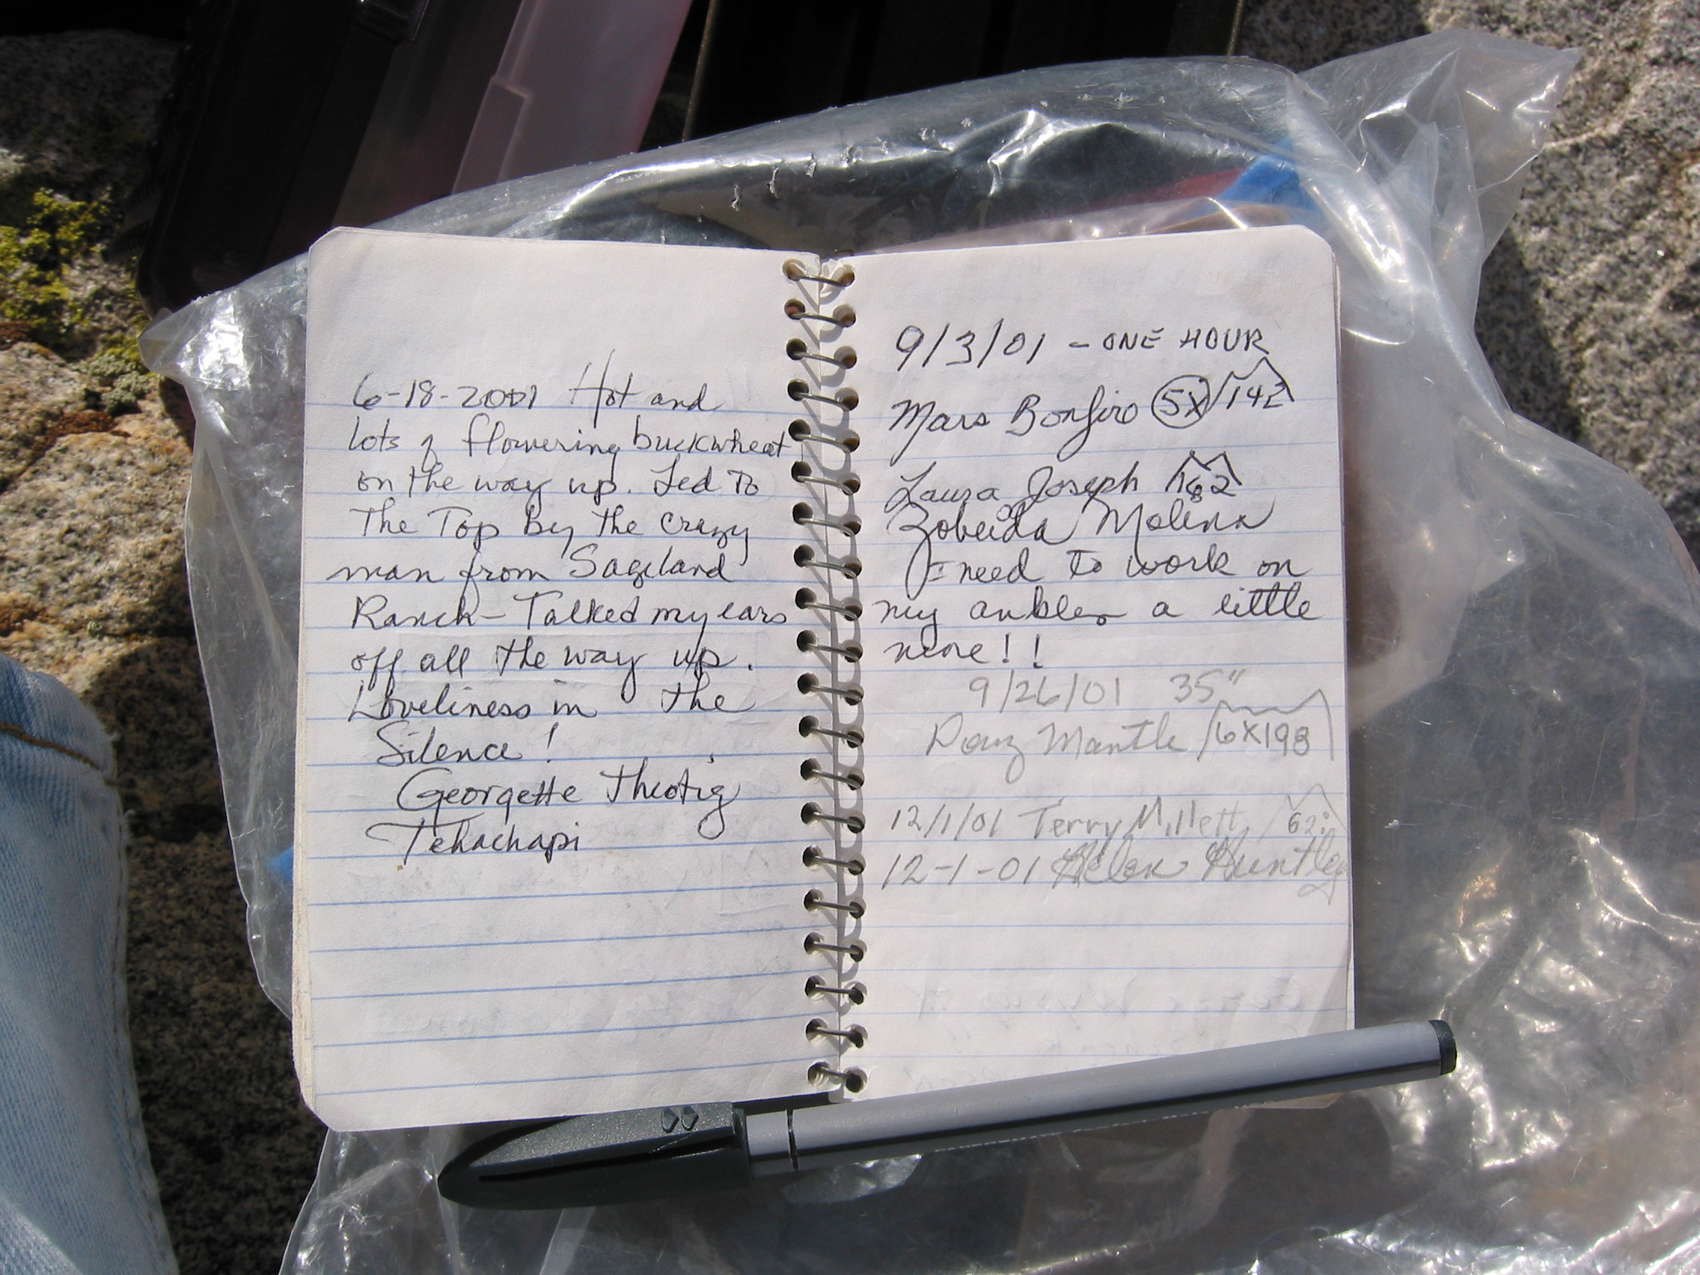 6-18-2001 Hot and
lots of flowering buckwheat
on the way up. Led to
the Top by the crazy
man from Sageland
Ranch - Talked my ears
off all the way up.
Loveliness in the
Silence!
Georgette Theotig
Tehachapi
9/3/01 - ONE HOUR
Mars Bonfire 5X 142
Laura Joseph 182
Zobeida Molina
I need to work on
my ankles a little
more!!
9/26/01 35"
Doug Mantle 6X198
12/1/01 Terry Millett
12-1-01 Helen Huntley